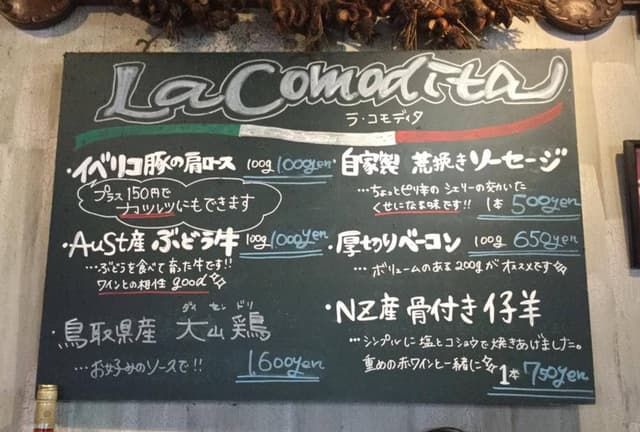 La Comodita
ラ・コモディタ
・イベリコ豚の肩ロース 100g 1000yen
プラス150円で
カツレツにもできます
・AuSt産 ぶどう牛 100g 1000yen
…ぶどうを食べて育った牛です!!
ワインとの相性 good☆
ダイ セン ドリ
・鳥取県産 大山鶏
…お好みのソースで!! 1,600yen
・自家製 荒挽きソーセージ
…ちょっとピリ辛の シェリーの効いた
くせになる味です!! 1本 500yen
・厚切りベーコン 100g 650yen
…ボリュームのある200gが オススメです☆
・NZ産 骨付き 仔羊
…シンプルに 塩とコショウで焼きあげました。
重めの赤ワインと一緒に☆ 1本 750yen